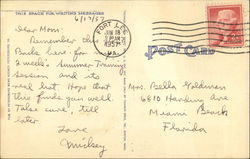 THIS SPACE FOR WRITING MESSAGES
6/17/57
Dear Mom:
Remember the
here for
2 week's Summer Training
session and its
real hot. Hope that
this finds you well.
Take care, till
later
Love
Mickey
FORT LEE
JUN 18
1957
VA.
POST CARD
Mrs. Bella Goldman
6810 Harding Ave
Miami Beach
Florida